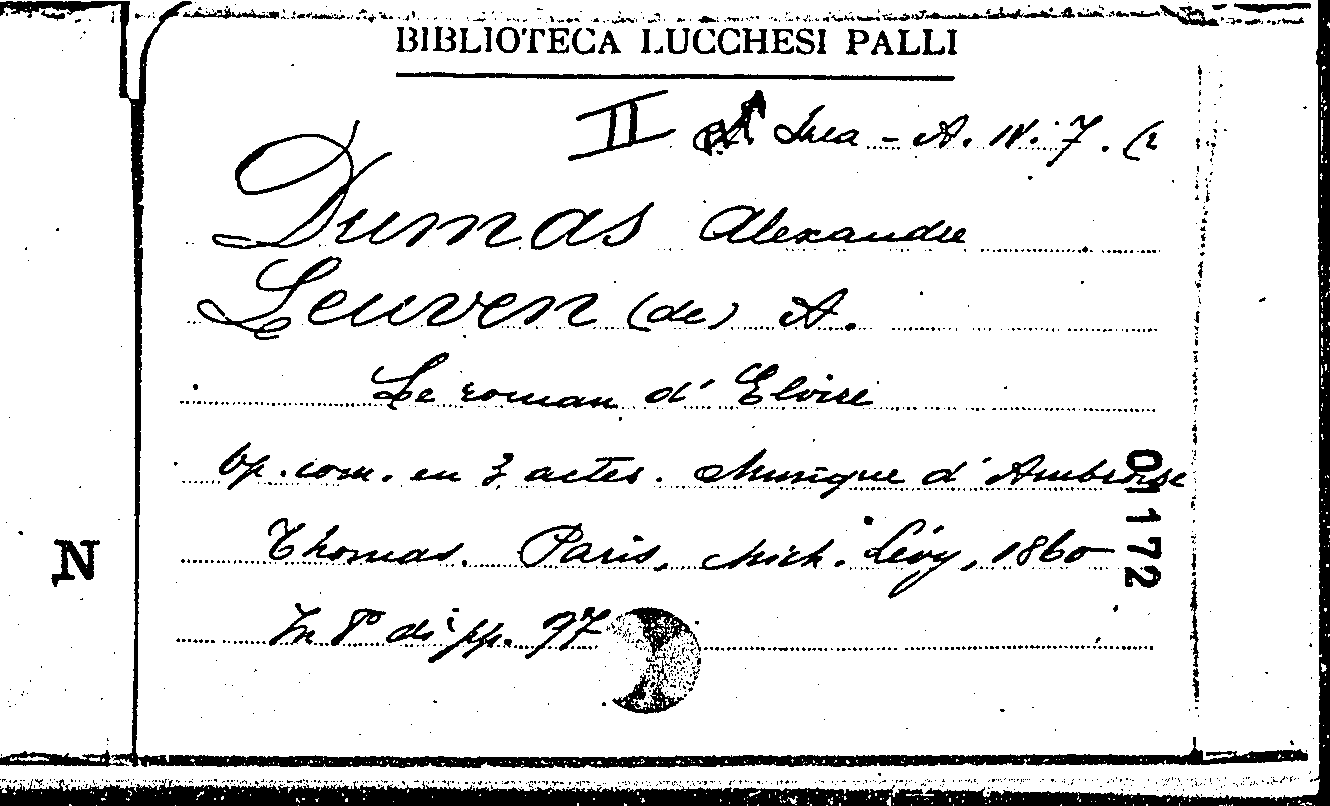 BIBLIOTECA LUCCHESI PALLI
II A. N. 7. (2
Dumas Alexandre
Leuven (de) A.
Le roman d'Elvire
Op. com. en 3 actes. Musique d'Ambroise
Thomas. Paris, Mich. Lévy, 1860
In 8° di pp. 97
01172
N